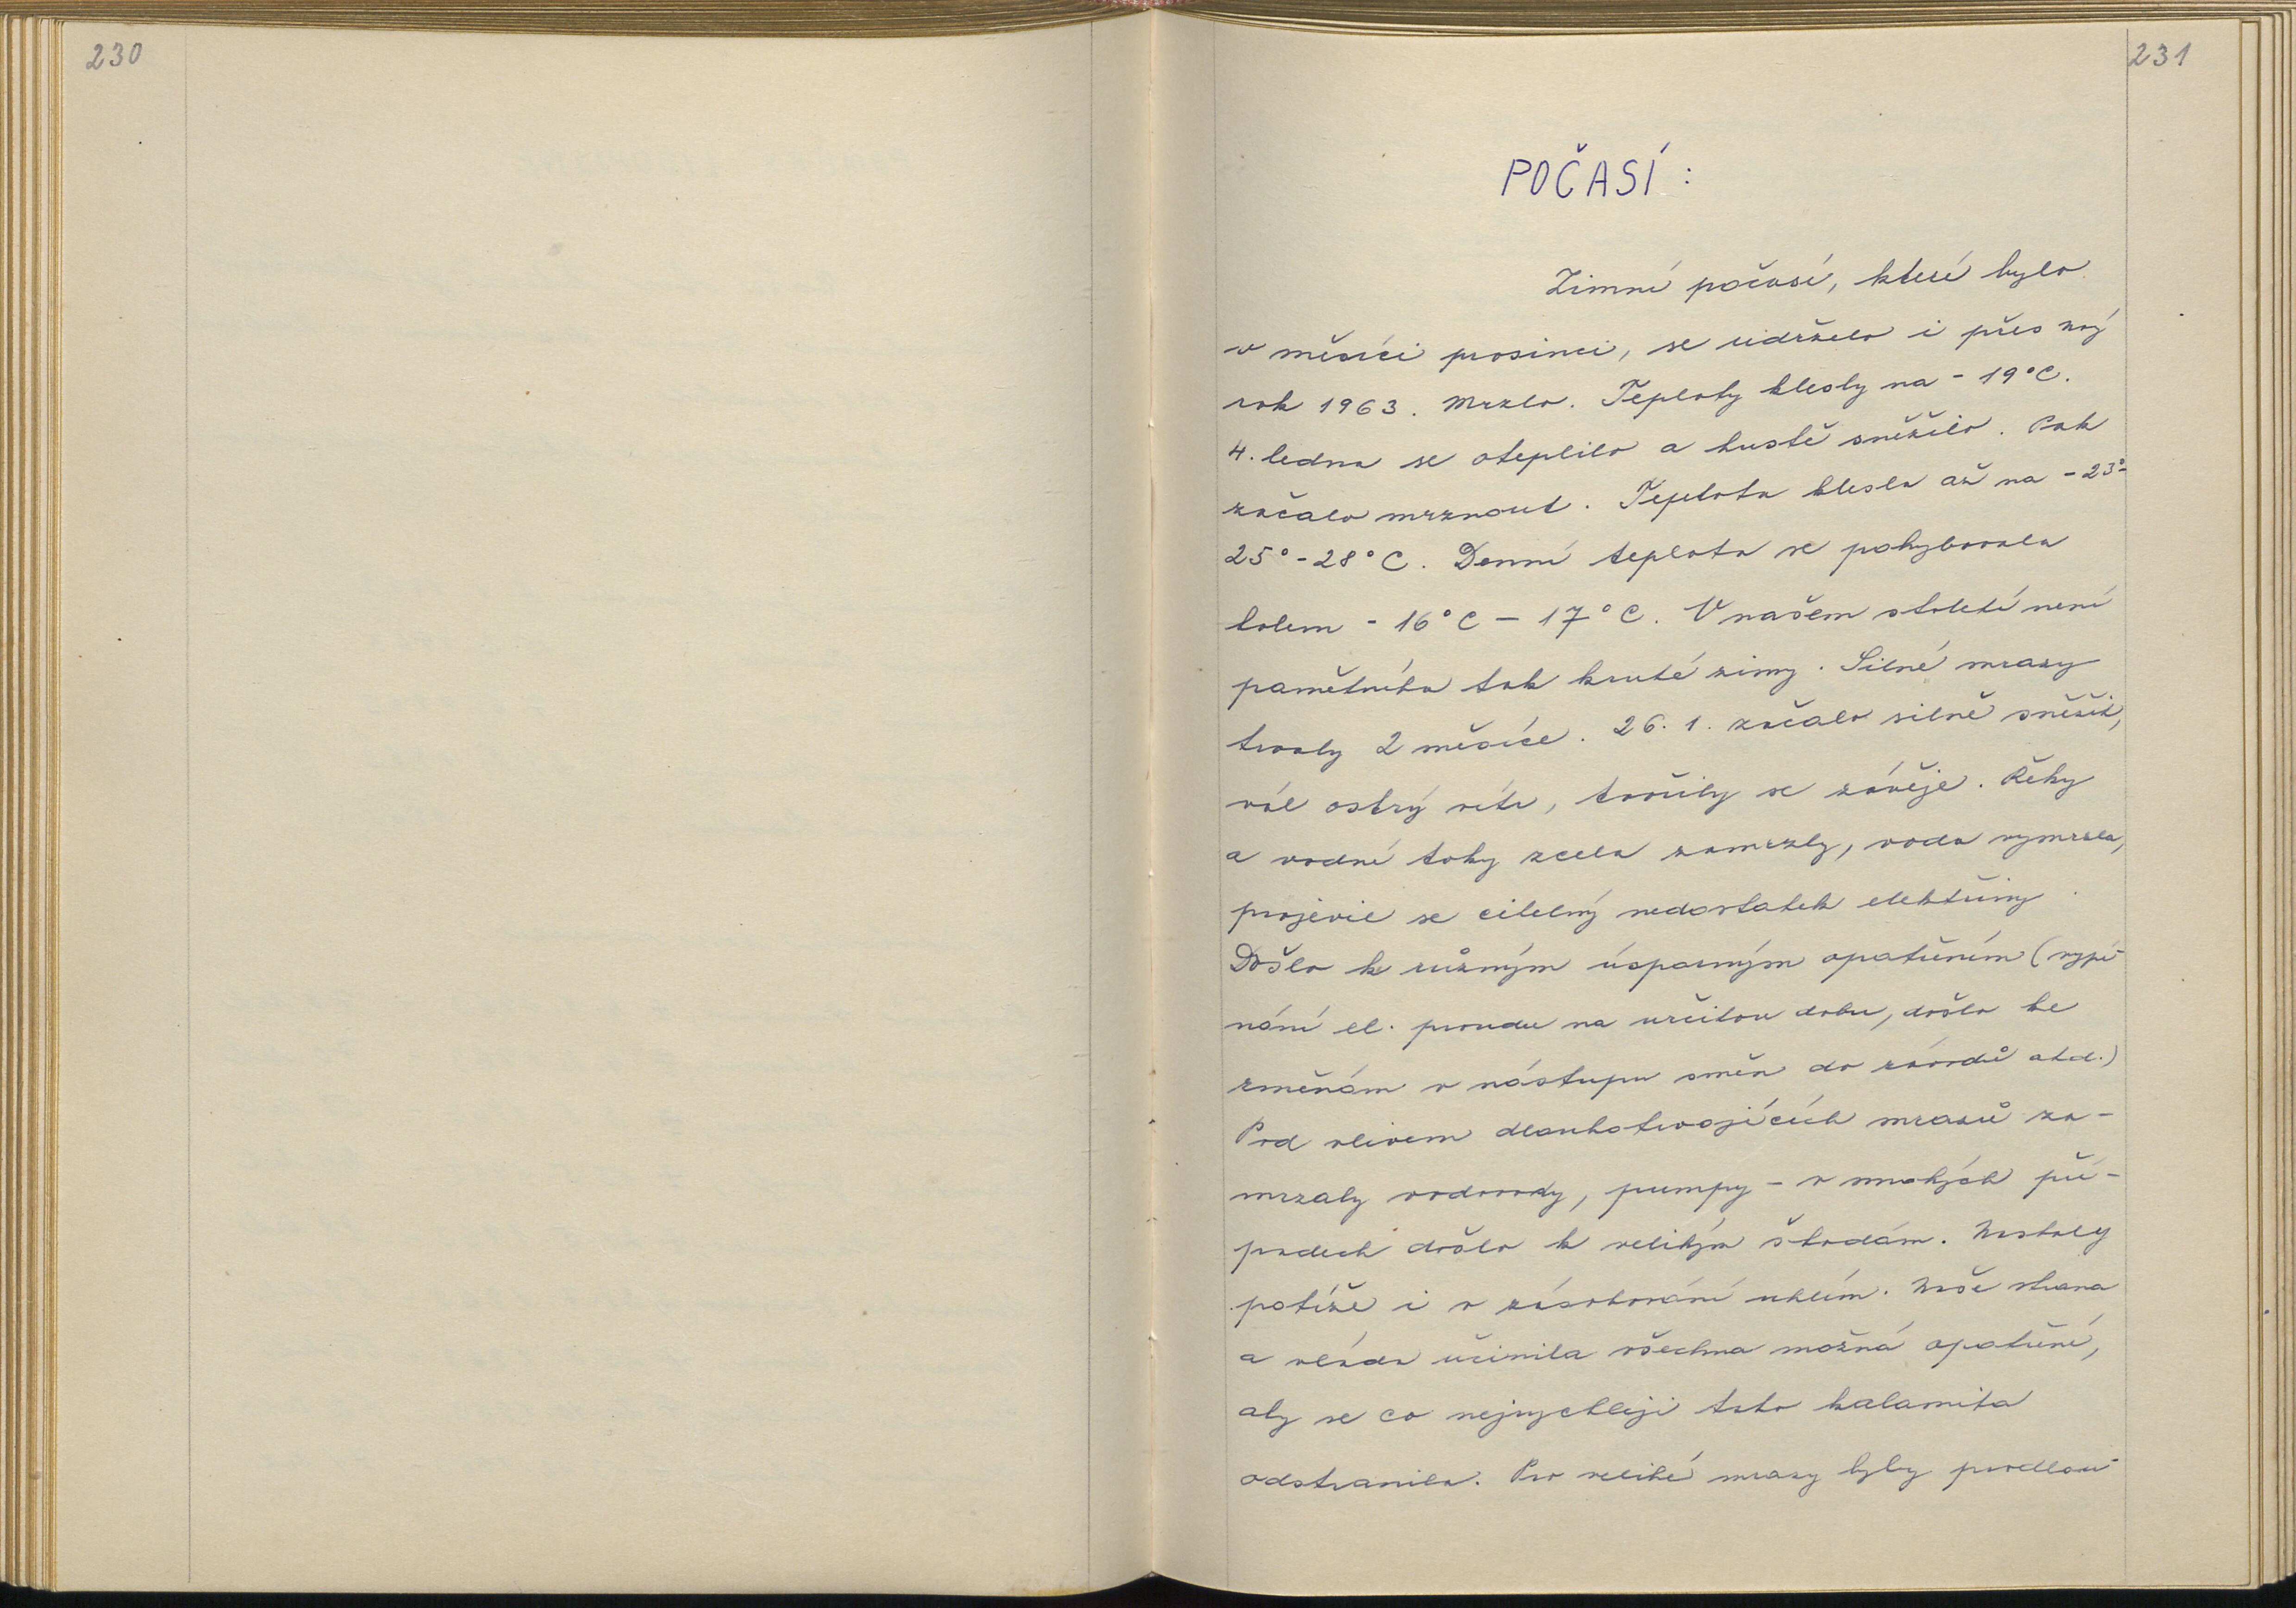 230
231
POČASÍ:
Zimní počasí, které bylo
v měsíci prosinci, se udrželo i přes nový
rok 1963. Mrzlo. Teploty klesly na -19°C.
4. ledna se oteplilo a hustě sněžilo. Pak
začalo mrznout. Teplota klesla až na -23°-
25°-28°C. Denní teplota se pohybovala
kolem -16°C - 17°C. V našem století není
pamětníka tak kruté zimy. Silné mrazy
trvaly 2 měsíce. 26. 1. začalo silně sněžit,
vál ostrý vítr, tvořily se závěje. Řeky
a vodní toky zcela zamrzly, voda vymrzla,
projevil se citelný nedostatek elektřiny.
Došlo k různým úsporným opatřením (vypí-
nání el. proudu na určitou dobu, došlo ke
změnám v nástupu směn do závodů atd.)
Pod vlivem dlouhotrvajících mrazů za-
mrzaly vodovody, pumpy - v mnohých pří-
padech došlo k velikým škodám. Nastaly
potíže i v zásobování uhlím. Naše strana
a vláda učinila všechna možná opatření,
aby se co nejrychleji tato kalamita
odstranila. Pro veliké mrazy byly prodlou-